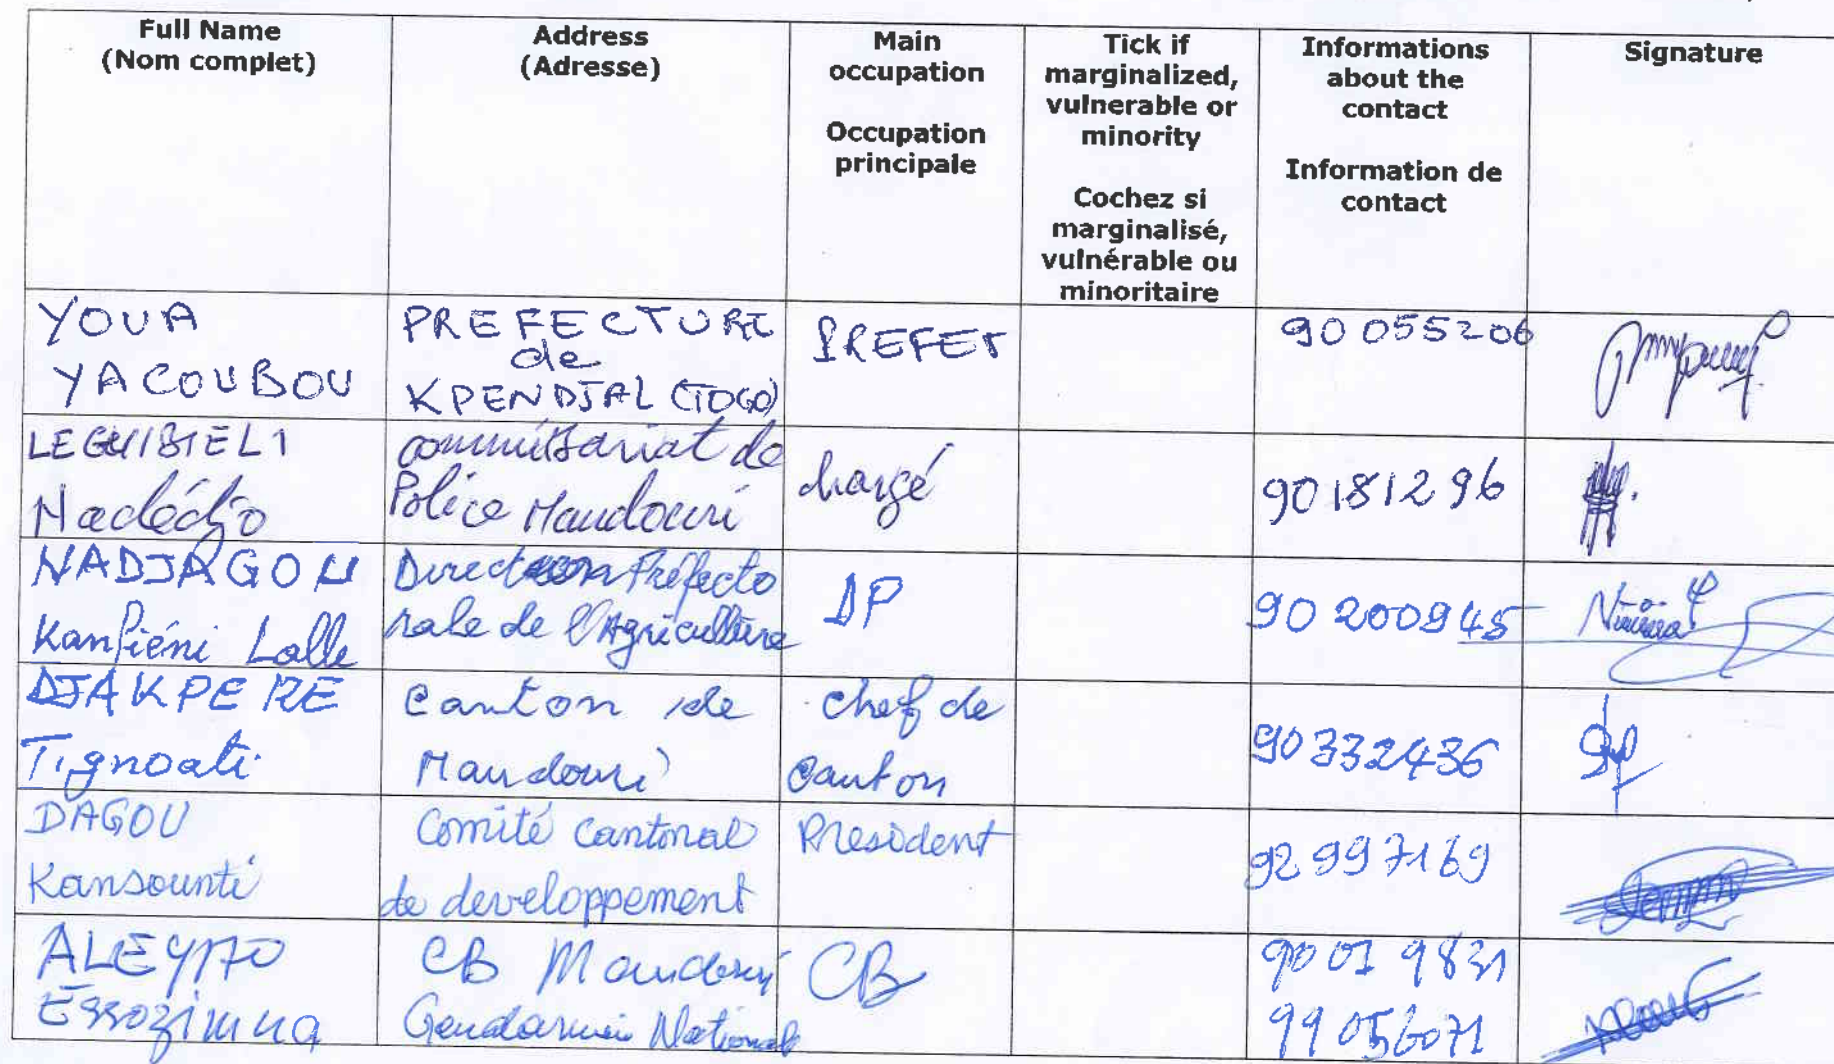 Full Name
(Nom complet)
Address
(Adresse)
Main
occupation
Occupation
principale
Tick if
marginalized,
vulnerable or
minority
Cochez si
marginalisé,
vulnérable ou
minoritaire
Informations
about the
contact
Information de
contact
Signature
YOUA
YACOUBOU
PREFECTURE
de
KPENDJAL (TOGO)
PREFET
90 055206
LEGUIBIELI
Nadédjo
commissariat de
Police Mandouri
chargé
90181296
NADJAGOU
Kanfiéni Lalle
Direction Préfecto
rale de l'Agriculture
DP
90 200945
DJAKPERE
Tignoati
Canton de
Mandouri
chef de
Canton
90332436
DAGOU
Kansounti
Comité cantonal
de developpement
President
92997169
Essozimna
CB Mandouri
Gendarmerie National
CB
99056071